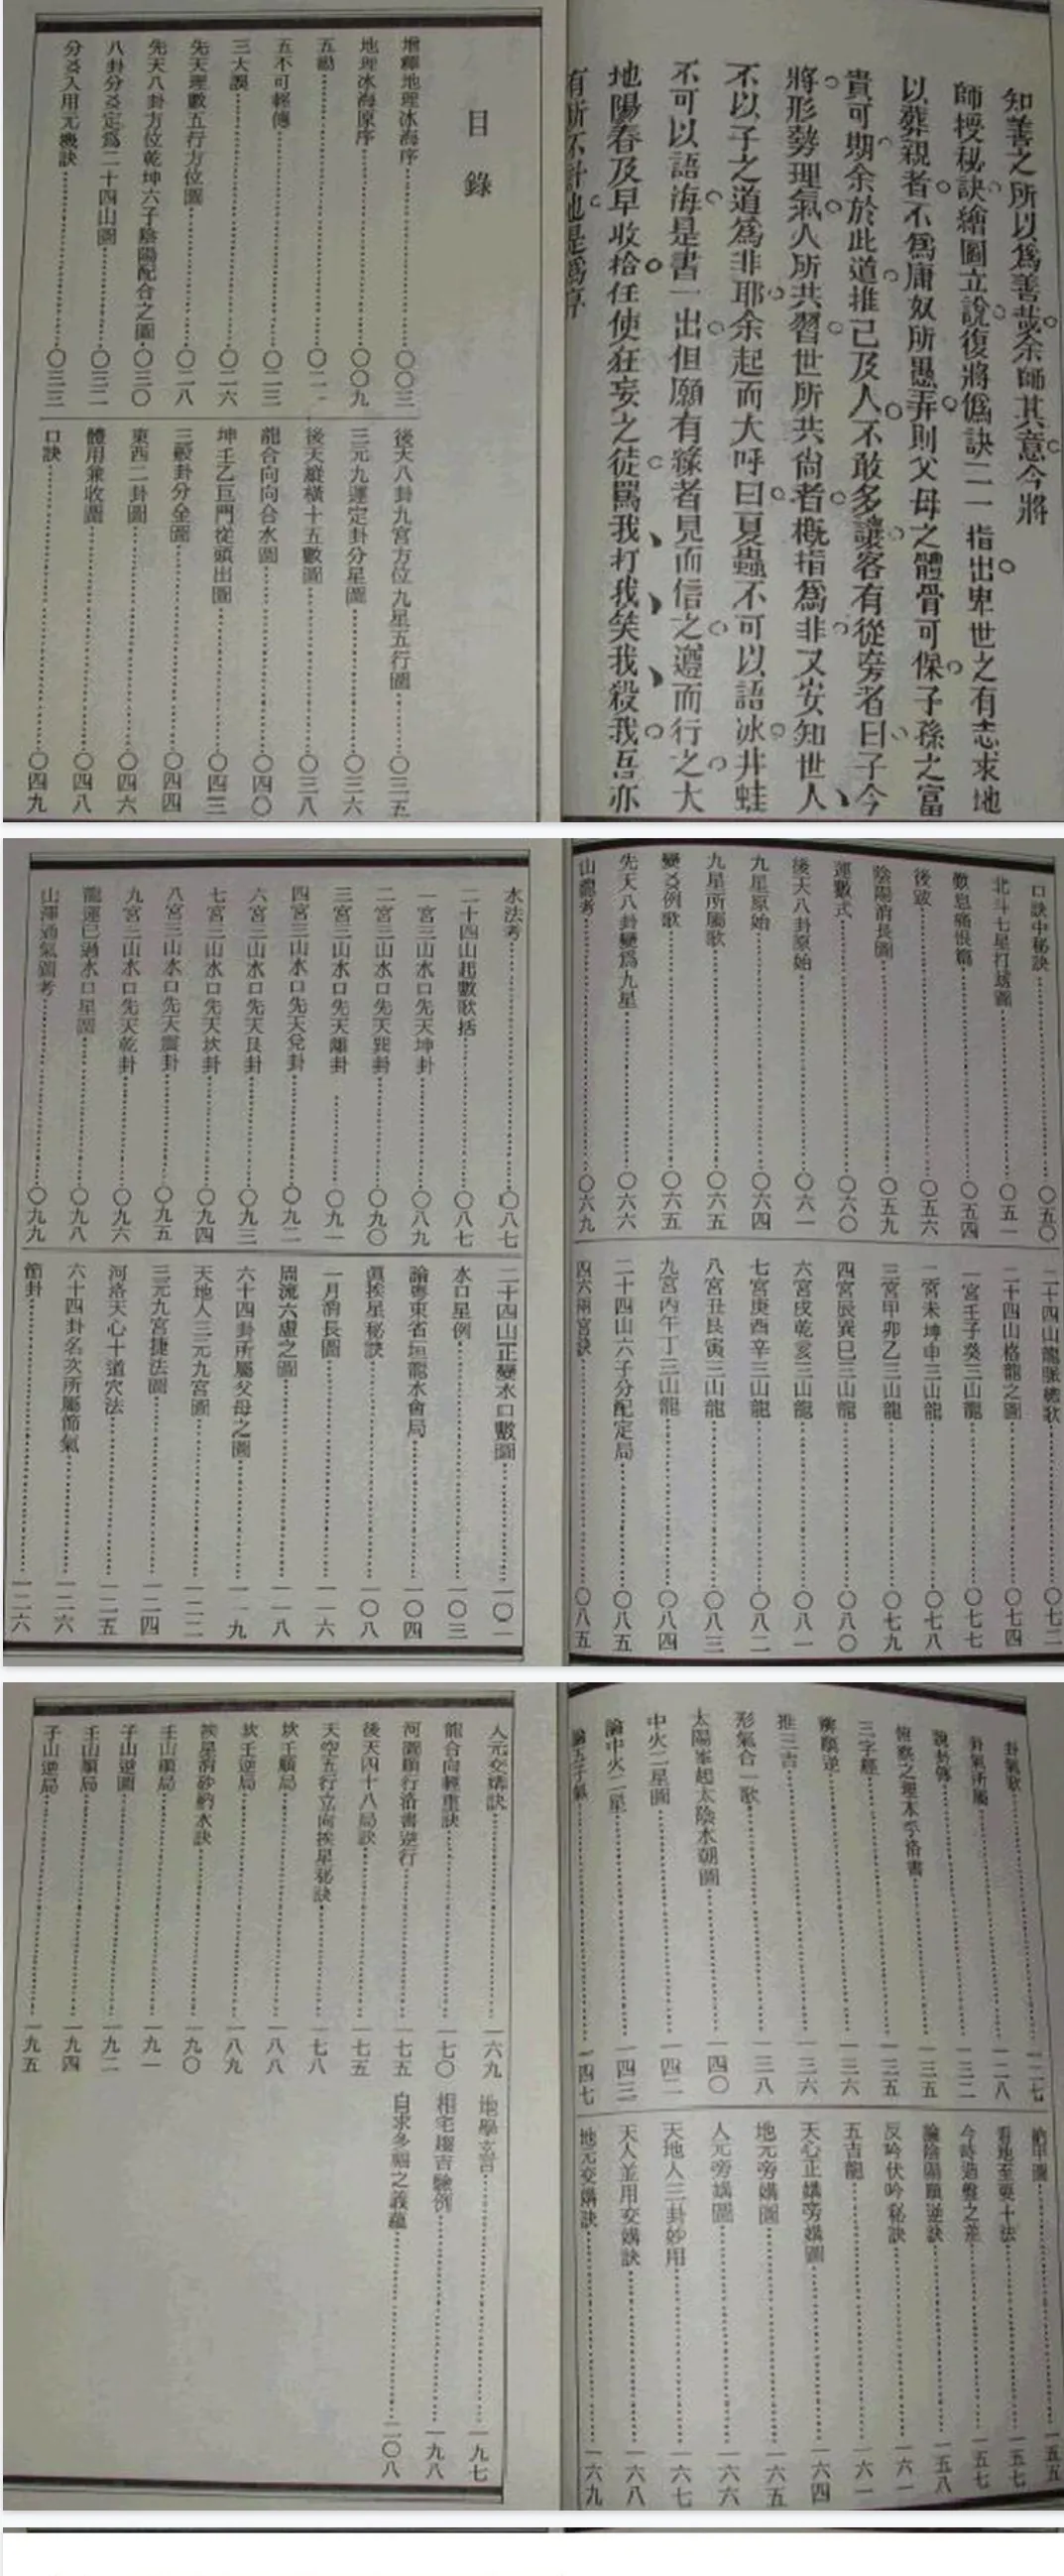 知善之所以為善哉余師其意今將
師授秘訣繪圖立說復將僞訣一一指出卑世之有志求地
以葬親者不為庸奴所愚弄則父母之體骨可保子孫之富
貴可期余於此道推己及人不敢多讓客有從旁者曰子今
將形勢理氣人所共習世所共尚者概指為非又安知世人
不以子之道為非耶余起而大呼曰夏蟲不可以語冰井蛙
不可以語海是書一出但願有緣者見而信之遵而行之大
地陽春及早收拾任使狂妄之徒罵我打我笑我殺我吾亦
有所不計也是為序
目錄
增釋地理冰海序〇〇三
地理冰海原序〇〇九
五勸〇二一
五不可輕傳〇二三
三大誤〇二六
先天理數五行方位圖〇二八
先天八卦方位乾坤六子陰陽配合之圖〇三〇
八卦分爻定為二十四山圖〇三二
分爻入用元機訣〇三三
後天八卦九宮方位九星五行圖〇三五
三元九運定卦分星圖〇三六
後天縱橫十五數圖〇三八
龍合向向合水圖〇四〇
坤壬乙巨門從頭出圖〇四三
三般卦分金圖〇四四
東西二卦圖〇四六
體用兼收圖〇四八
口訣〇四九
口訣中秘訣〇五〇
北斗七星打劫圖〇五一
歎息痛恨篇〇五四
後跋〇五六
陰陽消長圖〇五九
運數式〇六〇
後天八卦原始〇六一
九星原始〇六四
九星所屬歌〇六五
變爻例歌〇六五
先天八卦變為九星〇六六
山龍考〇六九
二十四山龍脈總歌〇七二
二十四山格龍之圖〇七四
一宮壬子癸三山龍〇七七
二宮未坤申三山龍〇七八
三宮甲卯乙三山龍〇七九
四宮辰巽巳三山龍〇八〇
六宮戌乾亥三山龍〇八一
七宮庚酉辛三山龍〇八二
八宮丑艮寅三山龍〇八三
九宮丙午丁三山龍〇八四
二十四山六子分配定局〇八五
四六兩宮訣〇八五
水法考〇八七
二十四山起數歌括〇八七
一宮三山水口先天坤卦〇八九
二宮三山水口先天巽卦〇九〇
三宮三山水口先天離卦〇九一
四宮三山水口先天兌卦〇九二
六宮三山水口先天艮卦〇九三
七宮三山水口先天坎卦〇九四
八宮三山水口先天震卦〇九五
九宮三山水口先天乾卦〇九六
龍運已過水口星圖〇九八
山澤通氣圖考〇九九
二十四山正變水口數圖一〇一
水口星例一〇三
論粵東省垣龍水會局一〇四
眞挨星秘訣一〇八
一月消長圖一一六
周流六虛之圖一一八
六十四卦所屬父母之圖一一九
天地人三元九宮圖一二二
三元九宮捷法圖一二四
河洛天心十道穴法一二五
六十四卦名次所屬節氣一二六
節卦一二六
卦氣歌一二七
卦氣所屬一二八
說卦傳一三二
俯察之理本乎洛書一三五
三字經一三五
辨順逆一三六
推三吉一三六
形氣合一歌一三八
太陽峯起太陰水朝圖一四〇
中火二星圖一四二
論中火二星一四三
論五子氣一四七
納甲圖一五五
看地至要十法一五七
今時造盤之差一五七
論陰陽順逆訣一五八
反吟伏吟秘訣一六一
五吉龍一六一
天心正媾旁媾圖一六四
地元旁媾圖一六五
人元旁媾圖一六六
天地人三卦妙用一六七
天人並用交媾訣一六八
地元交媾訣一六九
人元交媾訣一六九
龍合向輕重訣一七〇
河圖順行洛書逆行一七五
後天四十八局訣一七五
天空五行立向挨星秘訣一七八
坎壬順局一八八
坎壬逆局一八九
挨星消砂納水訣一九〇
壬山順局一九一
子山逆圖一九二
壬山順局一九四
子山逆局一九五
地學玄言一九七
相宅趨吉驗例一九八
自求多福之義蘊二〇八